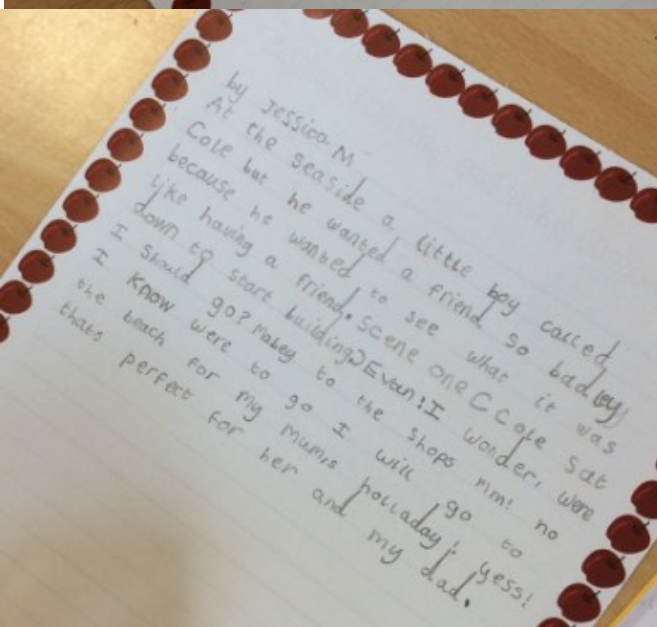 by Jessica M
At the seaside a little boy called
Cole but he wanted a friend so badley
because he wanted to see what it was
like having a friend. Scene one ( Cole Sat
down to start building) Evan! I wonder, were
I should go? Mabey to the shops mm! no
I know were to go I will go to
the beach for my mum,s holladay! yess!
thats perfect for her and my dad.